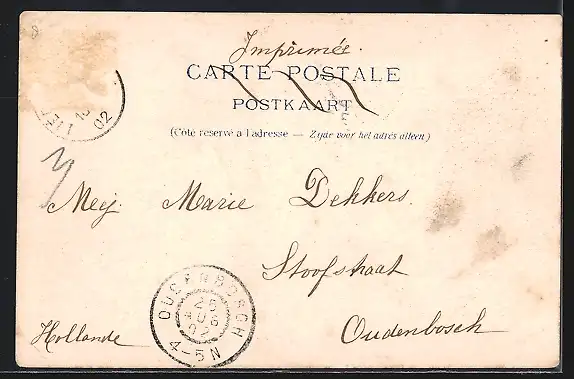 Imprimée.
CARTE POSTALE
POSTKAART
(Côté réservé à l'adresse — Zijde voor het adres alleen)
02
Mej. Marie Dekkers.
Stoofstraat
Oudenbosch
Hollande
OUDENBOSCH
25
AUG
02
4-5 N